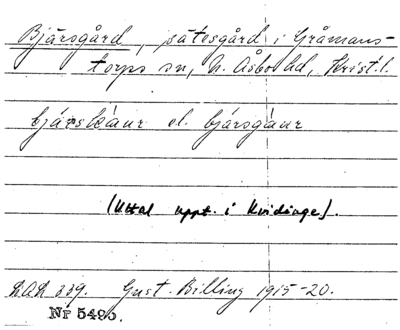 Bjärsgård, sätesgård i Gråmans-
torps sn, N. Åsbo hd, Krist. l.
bjársgáur
el. bjärsgáur
(Uttal uppt. i Kvidinge).
LAL 339. Gust. Billing 1915-20.
Nr 5495.